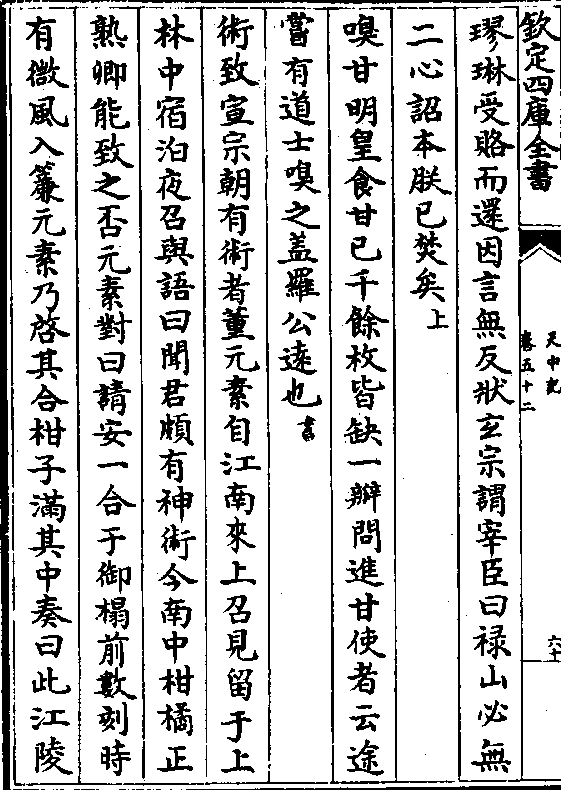 欽定四庫全書
天中記
卷五十二
六十
璆琳受賂而還因言無反狀玄宗謂宰臣曰禄山必無
二心詔本朕已焚矣上
嗅甘明皇食甘已千餘枚皆缺一瓣問進甘使者云途
嘗有道士嗅之蓋羅公逺也
術致宣宗朝有術者董元素自江南來上召見留于上
林中宿泊夜召與語曰聞君頗有神術今南中柑橘正
熟卿能致之否元素對曰請安一合于御榻前數刻時
有微風入簾元素乃啓其合柑子滿其中奏曰此江陵